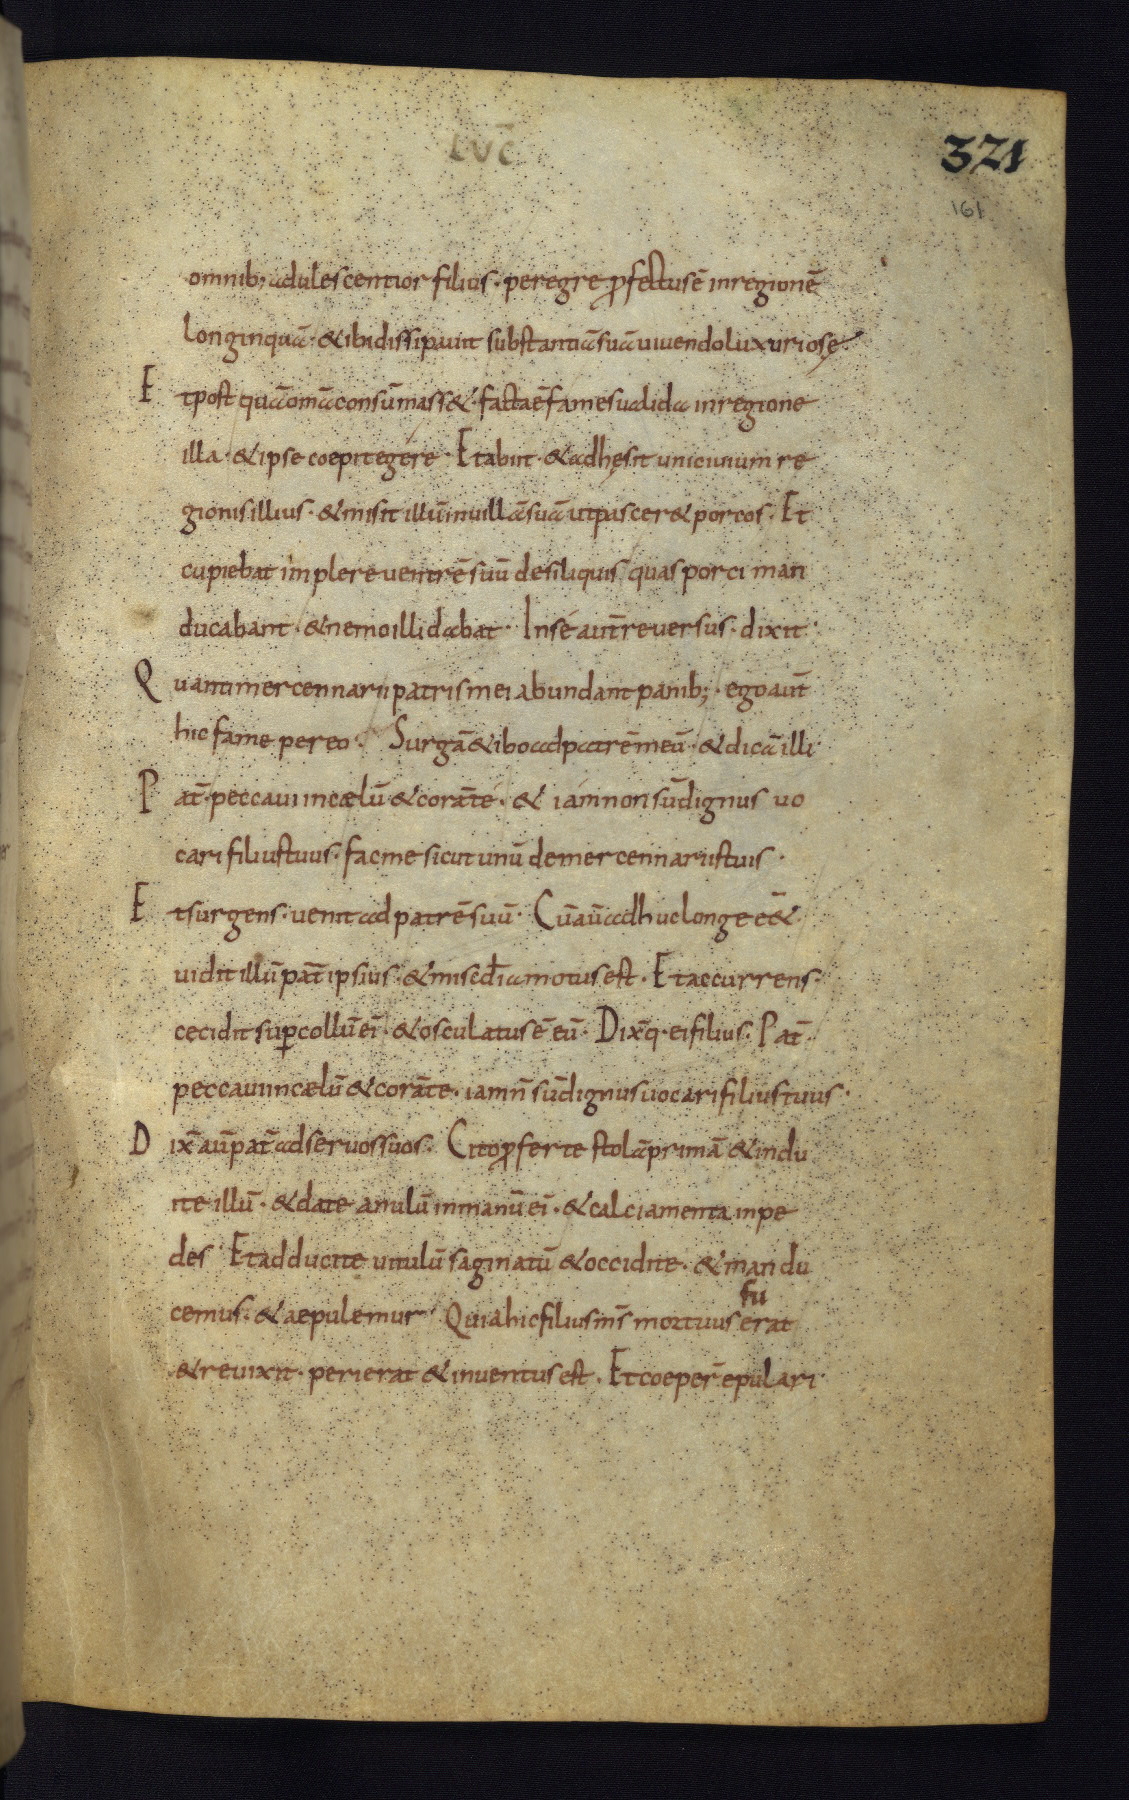 LUC̄
321
161
omnib; adulescentior filius · peregre ꝓfectus ē in regionē
longinquā · & ibi dissipauit substantiā suā uiuendo luxuriosę ·
E t postquā om̄a consūmass& · facta ē fames ualida in regione
illa · & ipse coepit egére · Et abiit · & adhęsit uni ciuium re
gionis illius · & misit illū in uillā suā ut pascer& porcos · Et
cupiebat implere uentrē suū de siliquis quas porci man
ducabant · & nemo illi dabat · In sé aut̄ reuersus · dixit ·
Q uanti mercennarii patris mei abundant panib; · ego aut̄
hic fame pereo · Surgā & ibo ad patrē meū · & dicā illi ·
P at̄ · peccaui in cælū & corā te · & iam non sū dignus uo
cari filius tuus · fac me sicut unū de mercennariis tuis ·
E t surgens · uenit ad patrē suū · Cū aū adhuc longe eēt& ·
uidit illū pat̄ ipsius · & misc̄dia motus est · Et accurrens ·
cecidit suꝑ collū eī · & osculatus ē eū · Dix̄q· ei filius · Pat̄ ·
peccaui in cælū & corā te · iam n̄ sū dignus uocari filius tuus ·
D ix̄ aū pat̄ ad seruos suos · Cito ꝓferte stolā primā & indu
ite illū · & date anulū in manū eī · & calciamenta in pe
des · Et adducite uitulū saginatū & occidite · & mandu
cemus · & aepulemur · Quia hic filius m̄s mortuus erat
fu
& reuixit · perierat & inuentus est · Et coeper̄ epulari ·